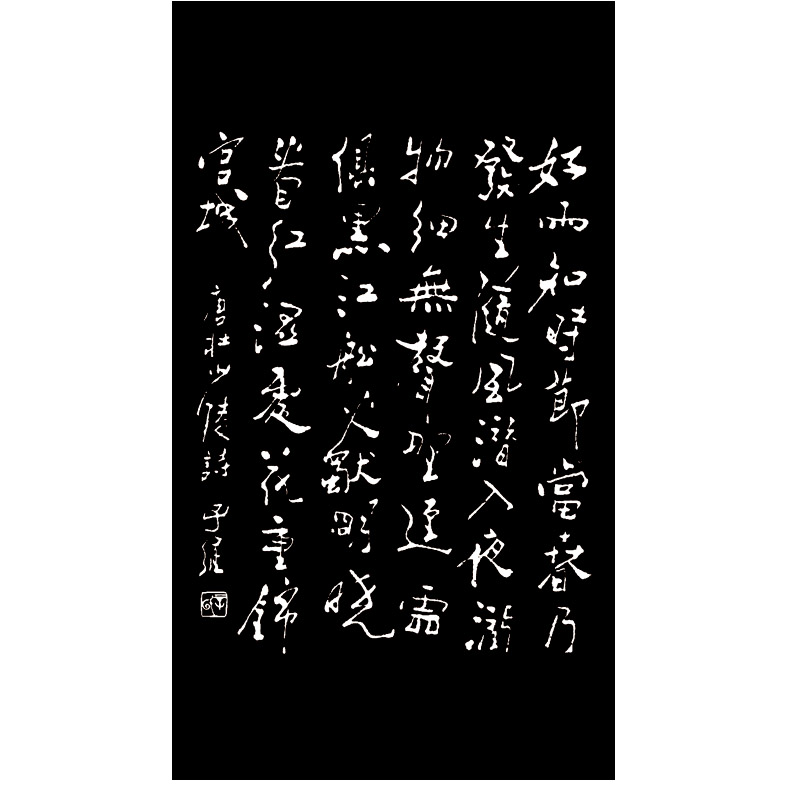 好雨知時節當春乃
發生隨風潛入夜潤
物細無聲野逕雲
俱黑江船火獨明曉
看紅濕處花重錦
官城 唐杜少陵詩